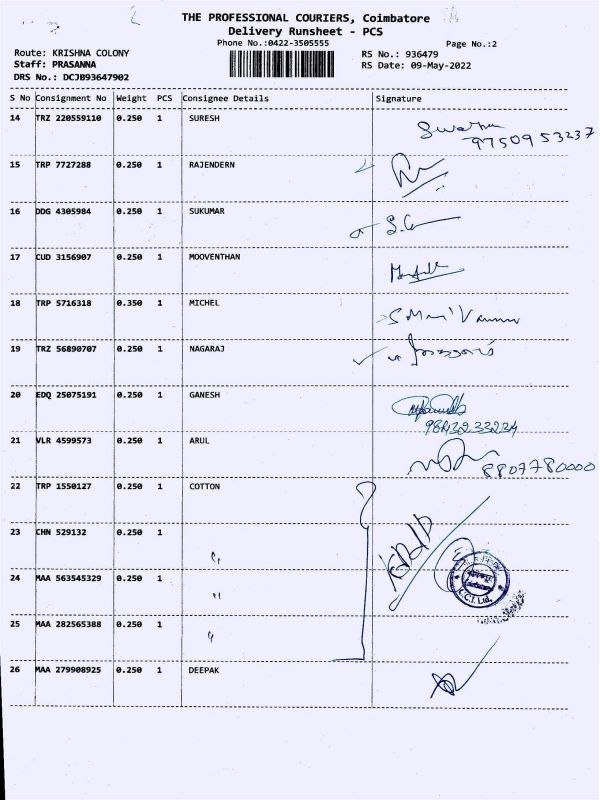 THE PROFESSIONAL COURIERS, Coimbatore
Delivery Runsheet - PCS
Phone No.:0422-3505555
Page No.:2
Route: KRISHNA COLONY
RS No.: 936479
Staff: PRASANNA
RS Date: 09-May-2022
DRS No.: DCJB93647902
S No Consignment No Weight PCS Consignee Details Signature
14 TRZ 220559110 0.250 1 SURESH
9750953237
15 TRP 7727288 0.250 1 RAJENDERN
16 DDG 4305984 0.250 1 SUKUMAR
17 CUD 3156907 0.250 1 MOOVENTHAN
18 TRP 5716318 0.350 1 MICHEL
19 TRZ 56890707 0.250 1 NAGARAJ
20 EDQ 25075191 0.250 1 GANESH
21 VLR 4599573 0.250 1 ARUL
8807780000
22 TRP 1550127 0.250 1 COTTON
23 CHN 529132 0.250 1 "
24 MAA 563545329 0.250 1 "
C.C.I. Ltd.
25 MAA 282565388 0.250 1 "
26 MAA 279908925 0.250 1 DEEPAK